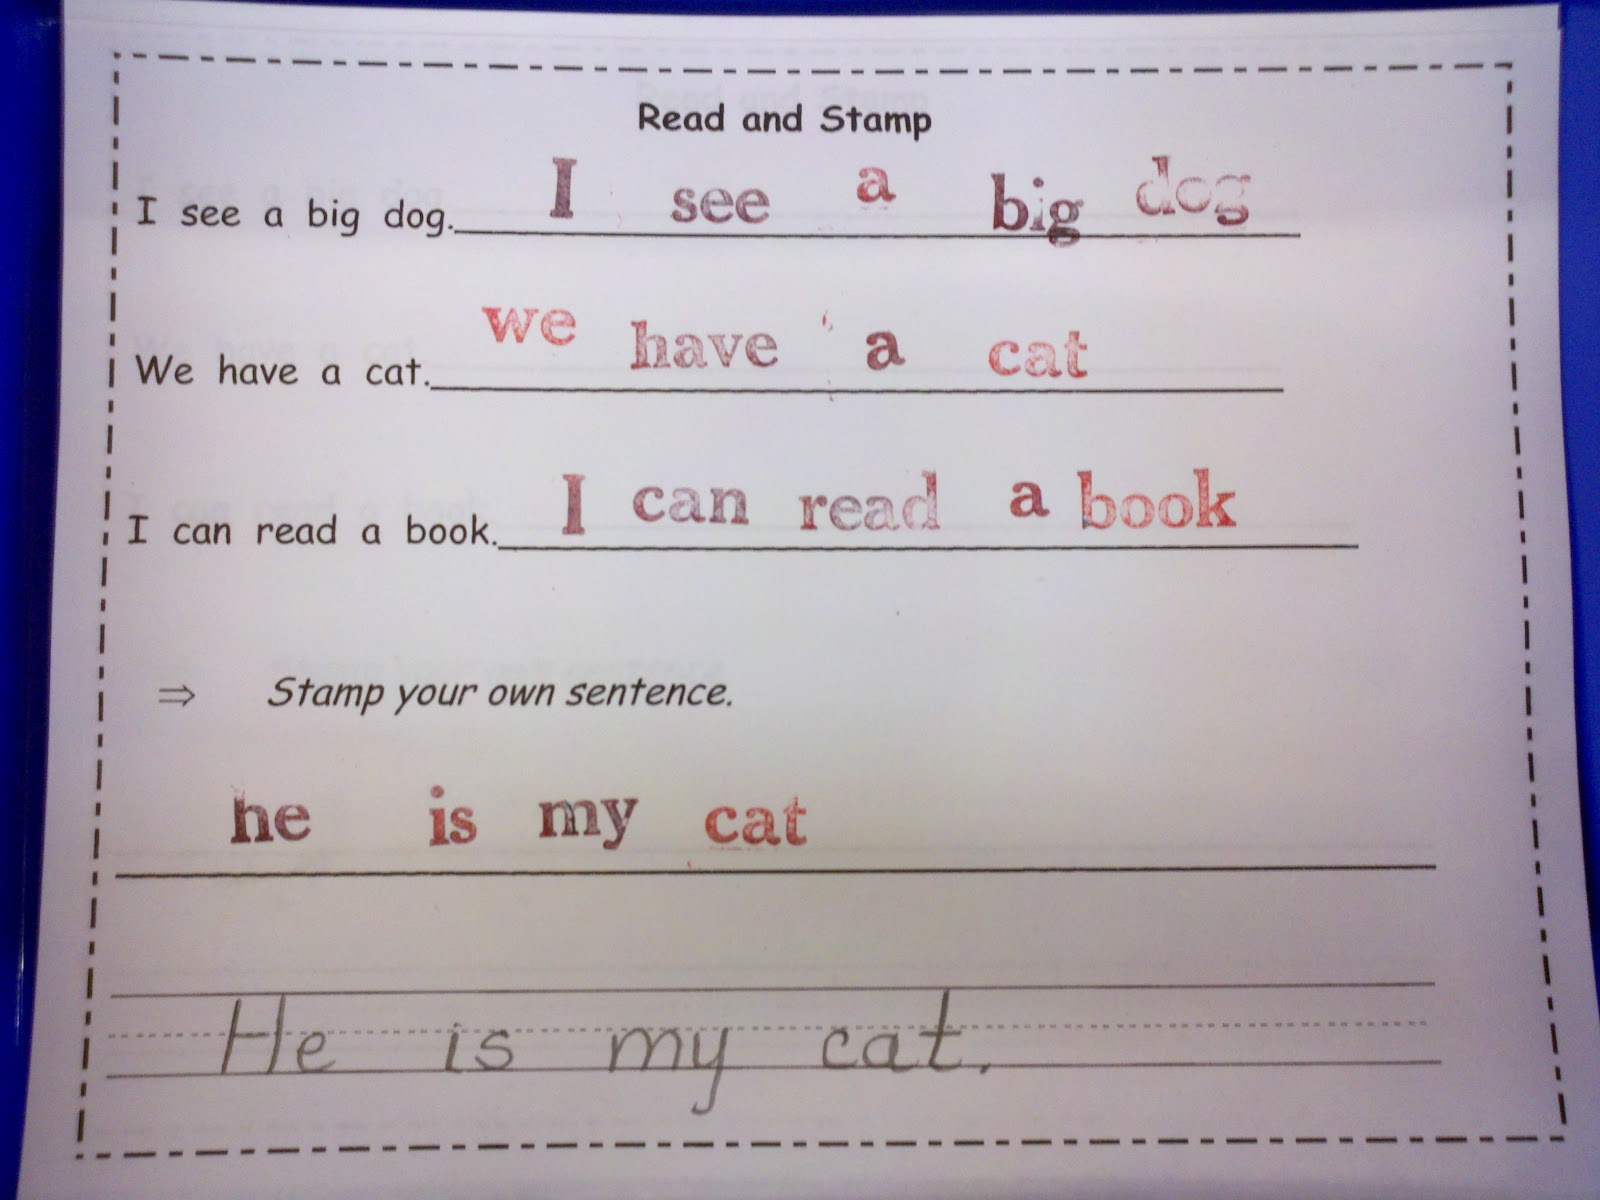 Read and Stamp
I see a big dog. I see a big dog
We have a cat. we have a cat
I can read a book. I can read a book
⇒ Stamp your own sentence.
he is my cat
He is my cat.